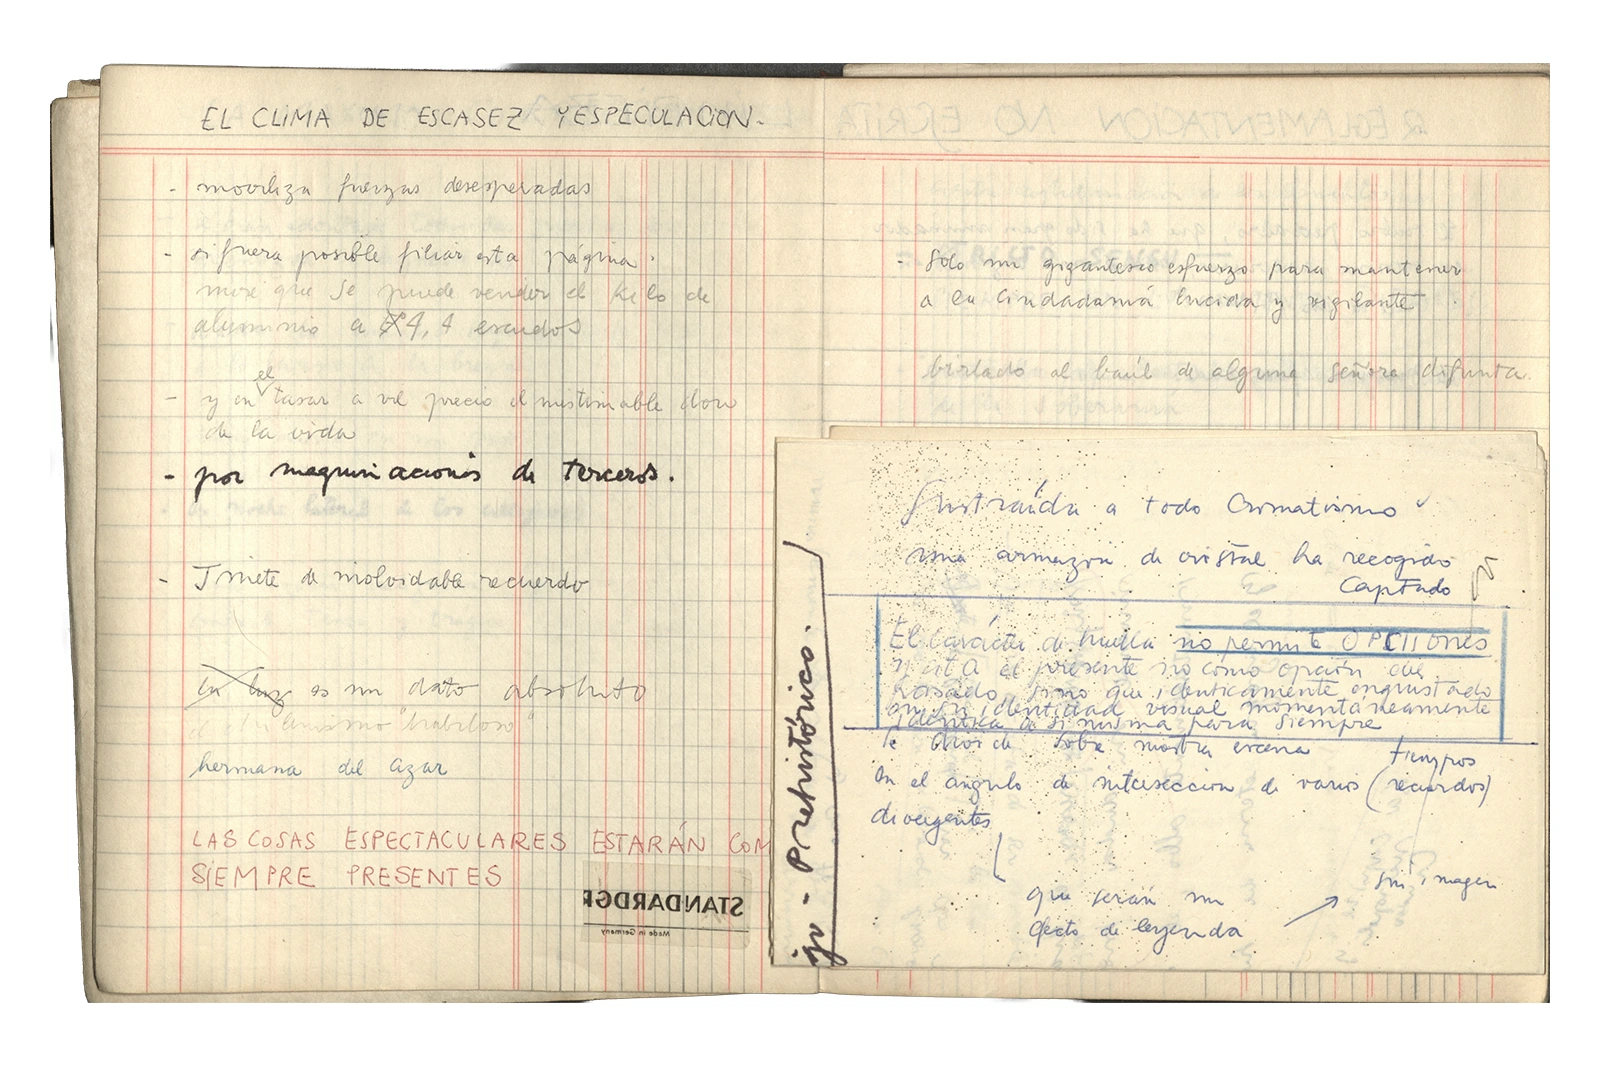 EL CLIMA DE ESCASEZ Y ESPECULACION.
- moviliza fuerzas desesperadas
- si fuera posible filiar esta página.
que se puede vender el kilo de
aluminio a 4,4 escudos
el
- y en tasar a vil precio el inestimable don
de la vida
- por maquinaciones de terceros.
- Jinete de inolvidable recuerdo
la luz es un dato absoluto
hermana del azar
LAS COSAS ESPECTACULARES ESTARÁN COM
SIEMPRE PRESENTES
STANDARDGR
Made in Germany
REGLAMENTACION NO ESCRITA
- Sólo un gigantesco esfuerzo para mantener
a la ciudadanía lúcida y vigilante
birlado al baúl de alguna señora difunta.
Prehistórico.
Sustraída a todo Cromatismo
una armazon de cristal ha recogido
Captado
El carácter de huella no permite OPCIIONES
y cita el presente no como opción del
pasado, sino que identicamente engustado
en su identidad visual momentaneamente
identica a si misma para siempre
sobre nuestra escena
tiempos
en el angulo de interseccion de varios (recuerdos)
divergentes
que serán un
efecto de leyenda
sin imagen